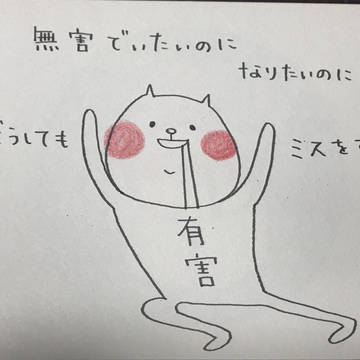 無害でいたいのに
なりたいのに
どうしても
ミスを
有害